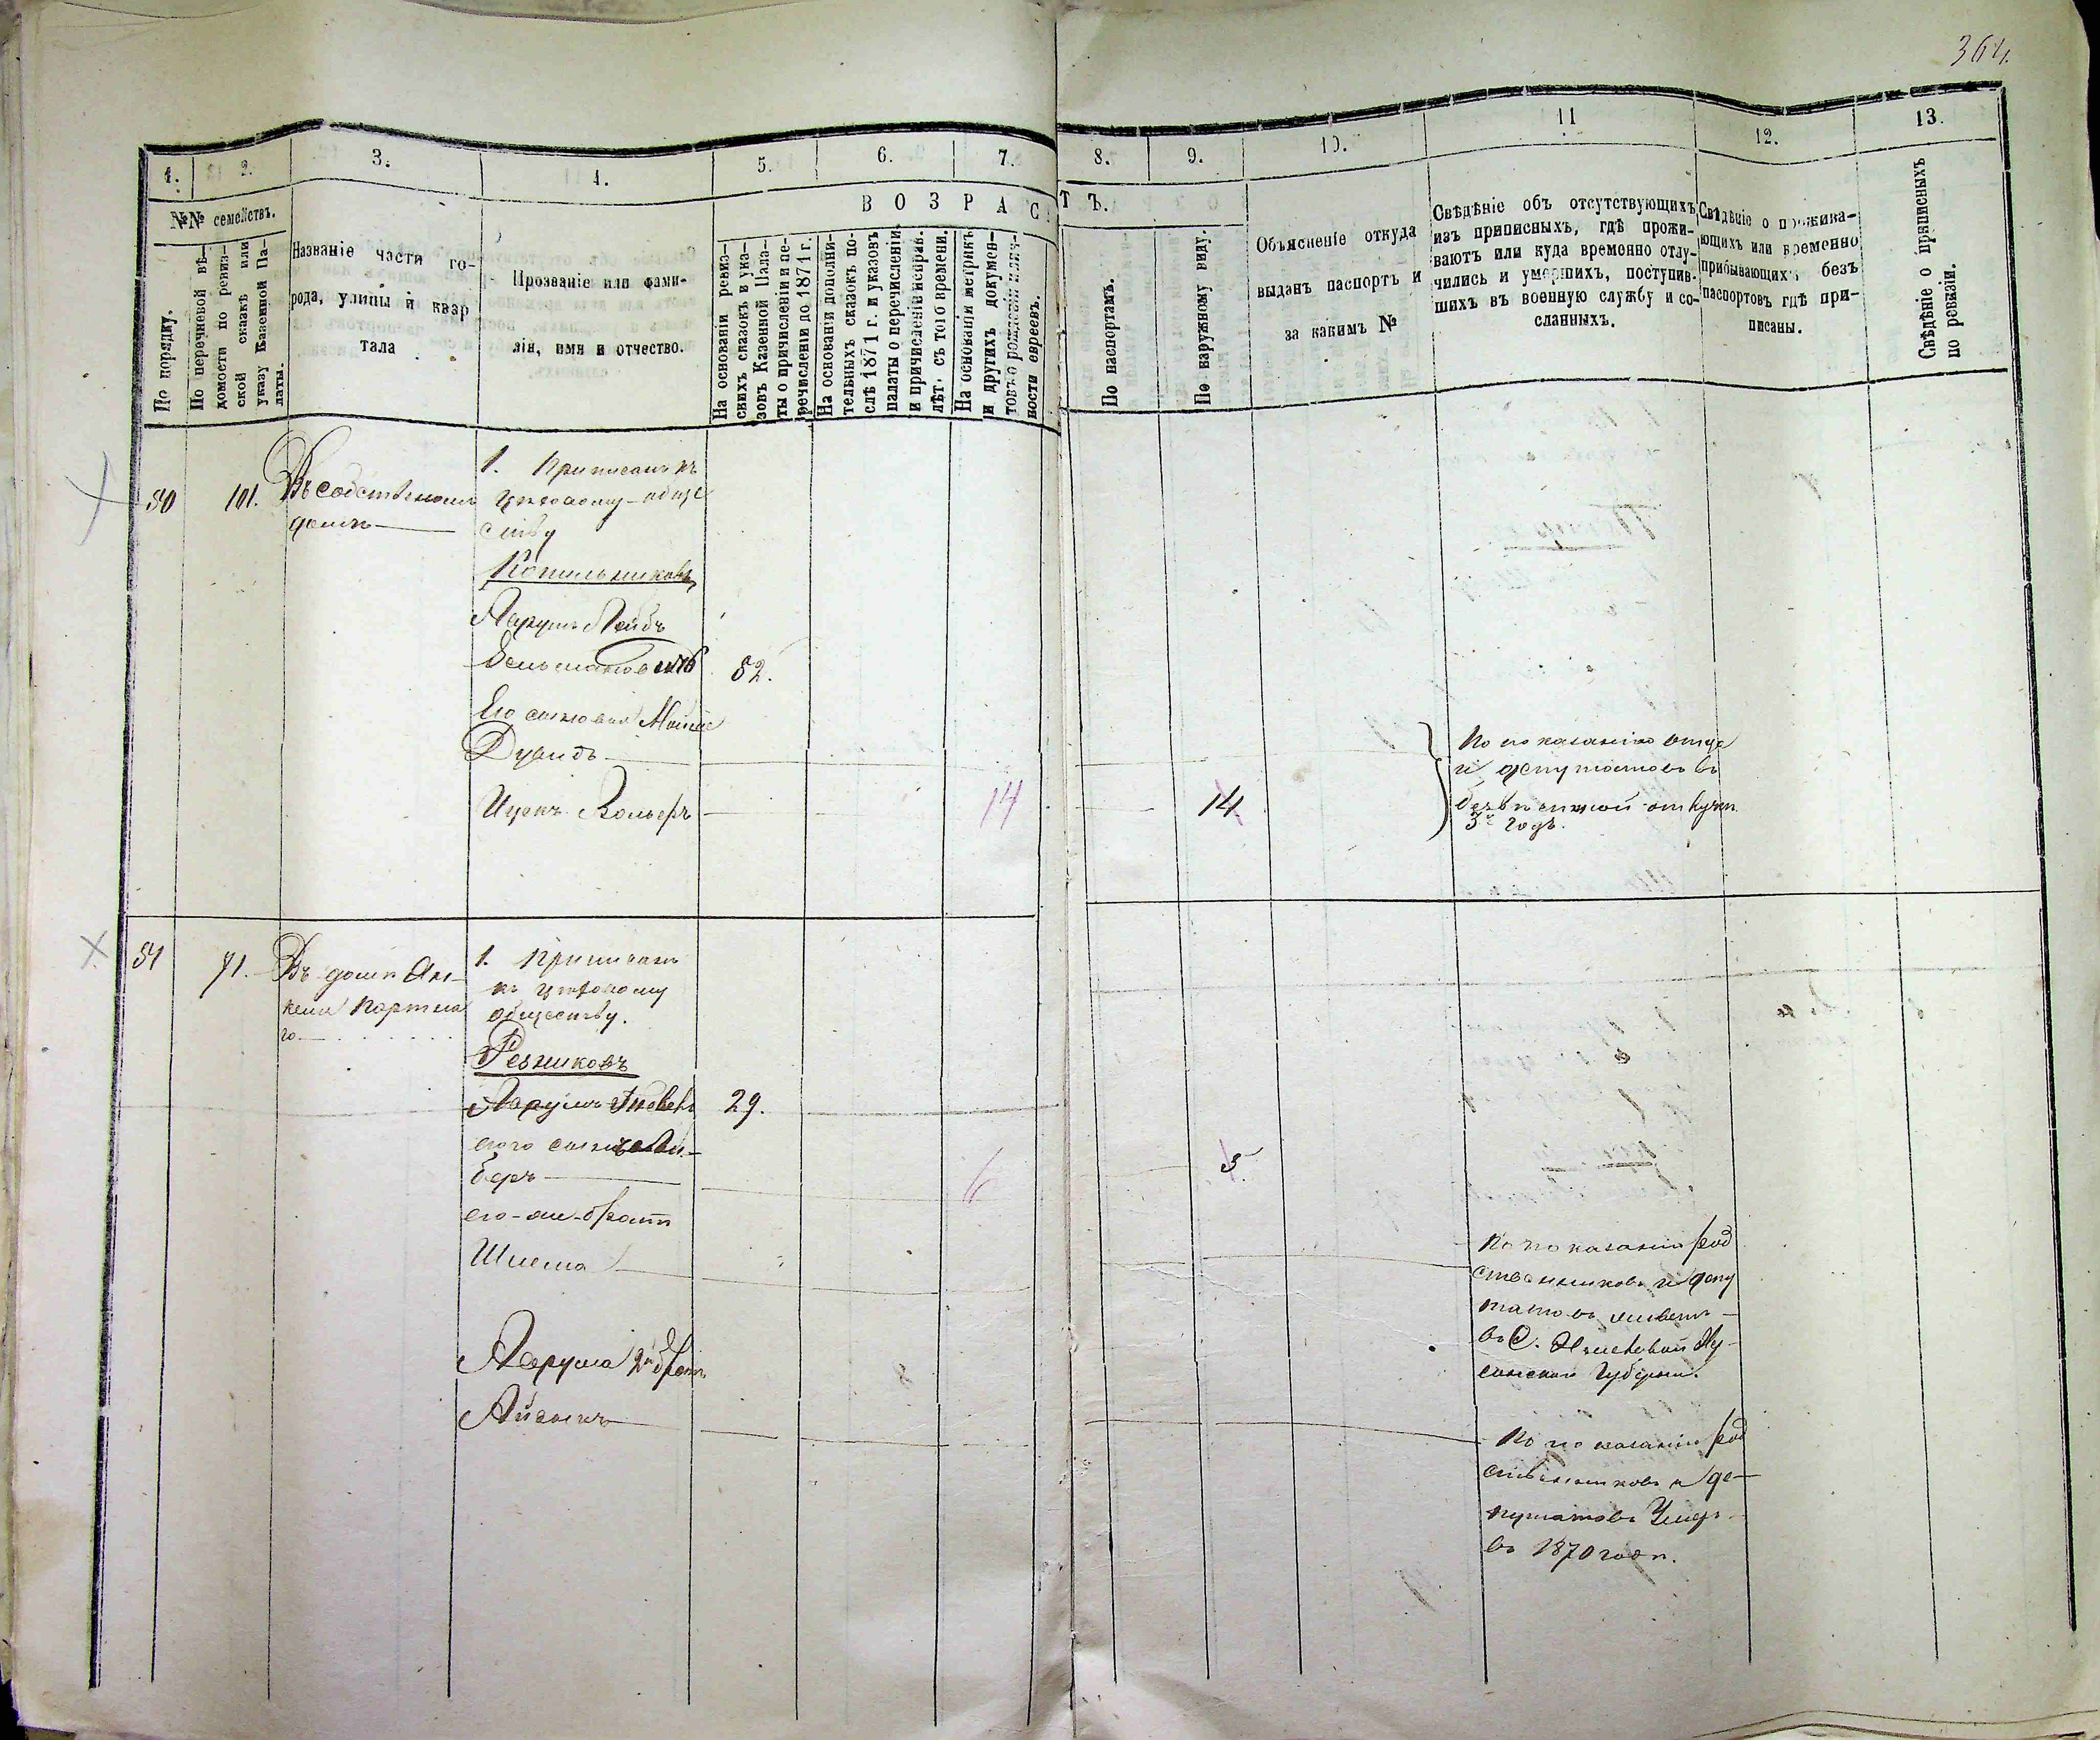 364.
1.
2.
3.
4.
5.
6.
7.
8.
9.
10.
11
12.
13.
№№ семействъ.
По порядку.
По перечневой вѣ-
домости по ревиз-
ской сказкѣ или
указу Казенной Па-
латы.
Названіе части го-
рода, улицы и квар
тала
Прозваніе или фами-
лія, имя и отчество.
ВОЗРАСТЪ.
На основаніи ревиз-
скихъ сказокъ и ука-
зовъ Казенной Пала-
ты о причисленіи и пе-
речисленіи до 1871 г.
На основаніи дополни-
тельныхъ сказокъ по-
слѣ 1871 г. и указовъ
палаты о перечисленіи
и причисленіи неправ.
лѣт. съ того времени.
На основаніи метрикъ
и другихъ докумен-
товъ о рожденіи
ности евреевъ.
По паспортамъ.
По наружному виду.
Объясненіе откуда
выданъ паспортъ и
за какимъ №
Свѣдѣніе объ отсутствующихъ
изъ приписныхъ, гдѣ прожи-
ваютъ или куда временно отлу-
чились и умершихъ, поступив-
шихъ въ военную службу и со-
сланныхъ.
Свѣдѣніе о прожива-
ющихъ или временно
прибывающихъ безъ
паспортовъ гдѣ при-
писаны.
Свѣдѣніе о приписныхъ
по ревизіи.
50
101.
Въ собственомъ
домѣ
1. Приписанъ къ
цеховому обще
ству
Копильниковъ
Лейбъ
52.
Его сыновья
Дувидъ
Ицекъ Вольфъ
14
14.
По показанію отца
и депутатовъ въ
безвѣстной отлучкѣ
3й годъ.
51
71.
Въ домѣ
го
1. Приписанъ
къ цеховому
обществу.
Резниковъ
29.
его сынъ
беръ
6
5.
его-же-братъ
Шлема
По показанію род
ственниковъ и депу
татовъ живетъ
въ С.
Губерніи.
2й братъ
Айзикъ
По показанію род
ственниковъ и де-
путатовъ Умеръ
въ 1870 годѣ.